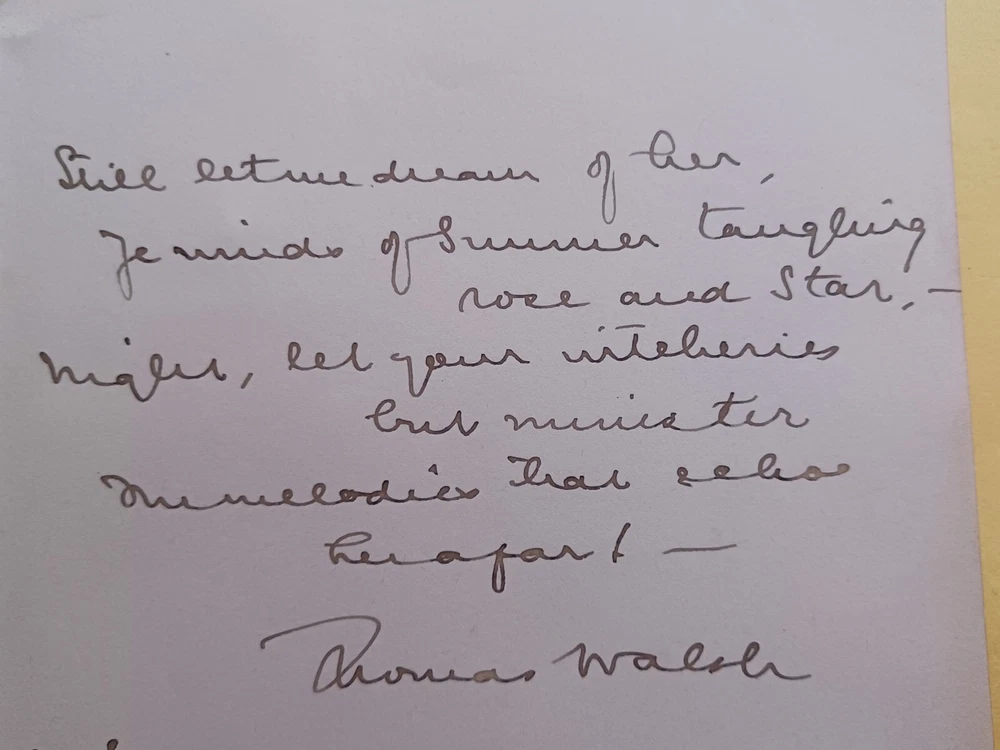 Still let me dream of her,
Ye winds of Summer tangling
rose and Star, —
Night, let your witcheries
but minister
In melodies that echo
her afar! —
Thomas Walsh